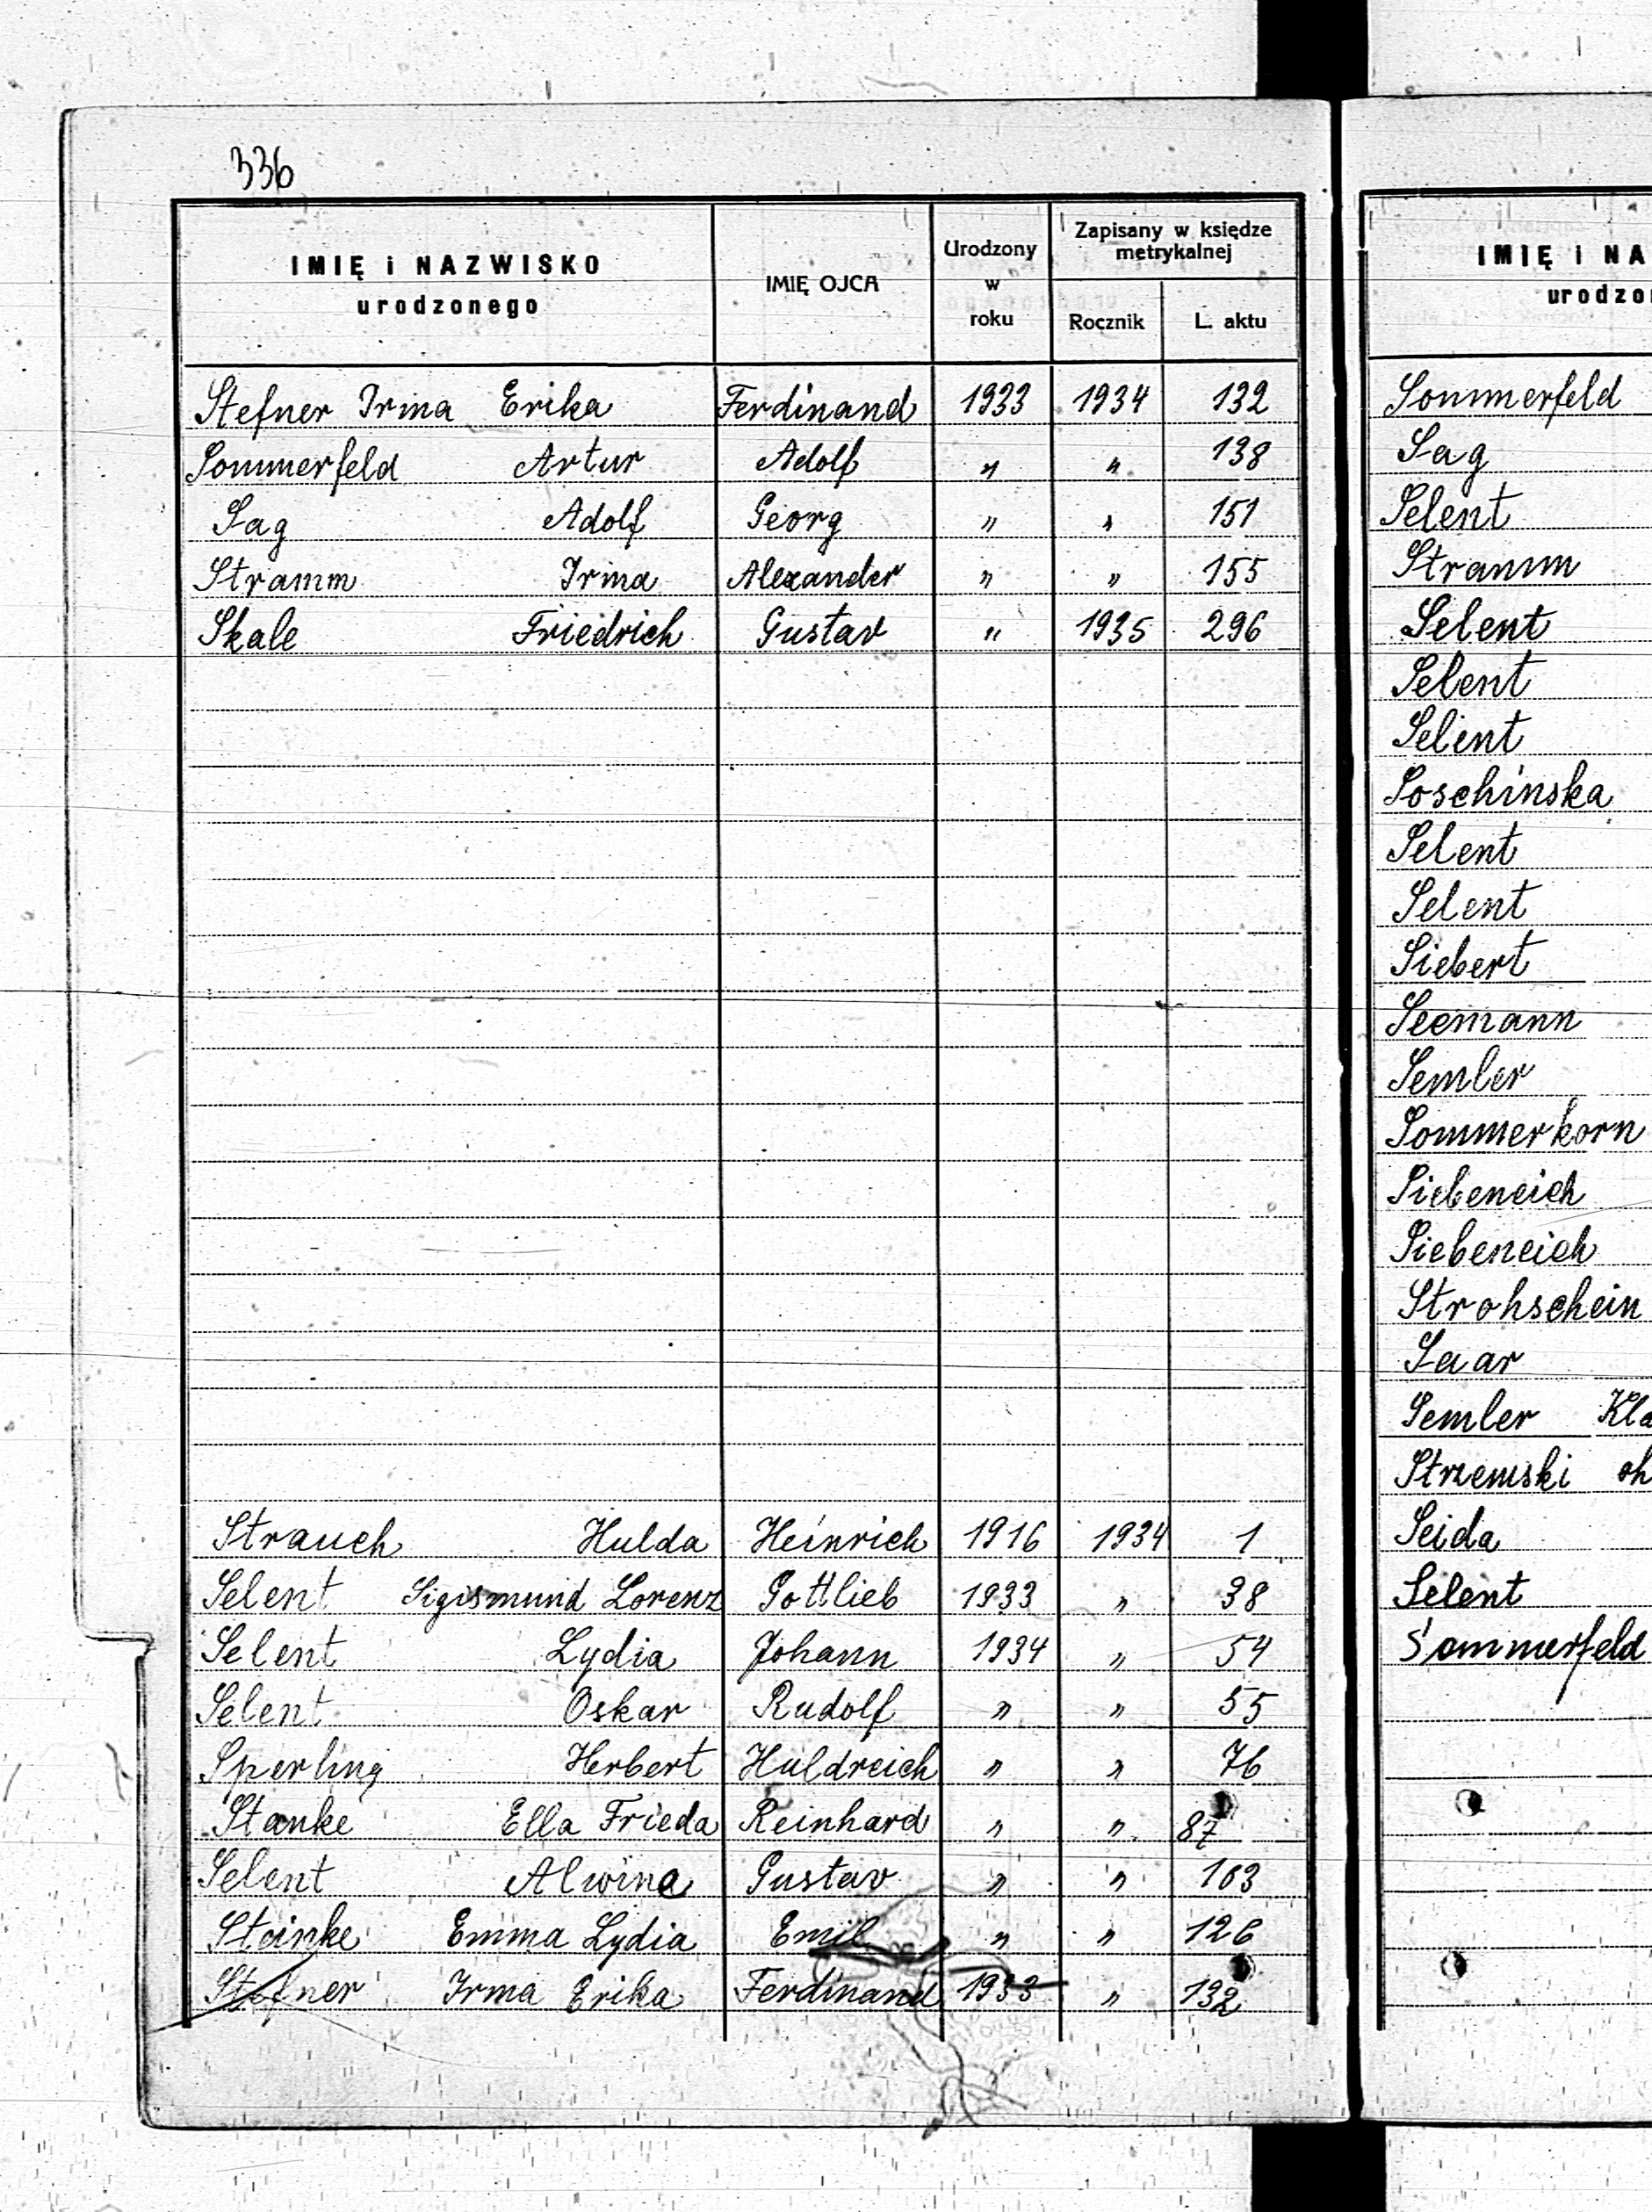 336
IMIĘ i NAZWISKO
urodzonego
IMIĘ OJCA
Urodzony
w
roku
Zapisany w księdze
metrykalnej
Rocznik L. aktu
Stefner Irma Erika Ferdinand 1933 1934 132
Sommerfeld Artur Adolf " " 138
Sag Adolf Georg " " 151
Stramm Irma Alexander " " 155
Skale Friedrich Gustav " 1935 296
Strauch Hulda Heinrich 1916 1934 1
Selent Sigismund Lorenz Gottlieb 1933 " 38
Selent Lydia Johann 1934 " 54
Selent Oskar Rudolf " " 55
Sperling Herbert Huldreich " " 76
Stanke Ella Frieda Reinhard " " 87
Selent Alwine Gustav " " 103
Stanke Emma Lydia Emil " " 126
Stefner Irma Erika Ferdinand 1933 " 132
IMIĘ i NA
urodzo
Sommerfeld
Sag
Selent
Stramm
Selent
Selent
Selent
Soschinska
Selent
Selent
Siebert
Seemann
Semler
Sommerkorn
Siebeneich
Siebeneich
Strohschein
Saar
Semler Kla
Strzemski oh
Seida
Selent
Sommerfeld